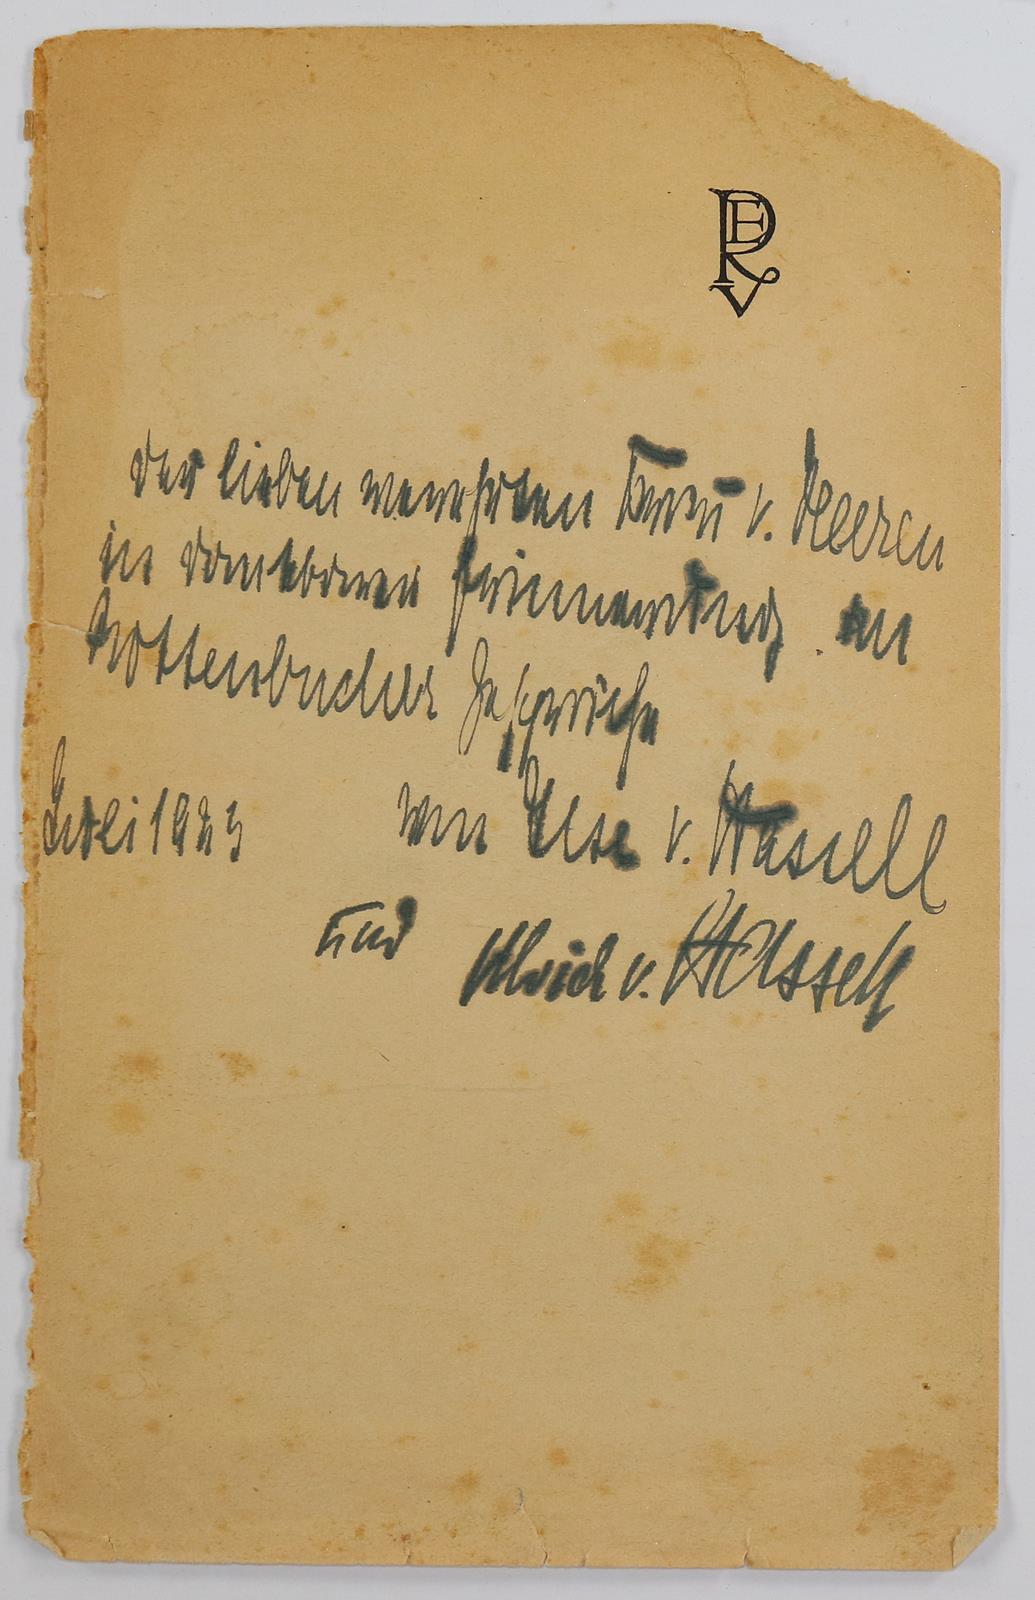 PERV
Der lieben verehrten Frau v. Heeren
in dankbarer Erinnerung an
Rottenbucher Gespräche
Juli 1923 von Ilse v. Hassell
und Ulrich v. Hassell